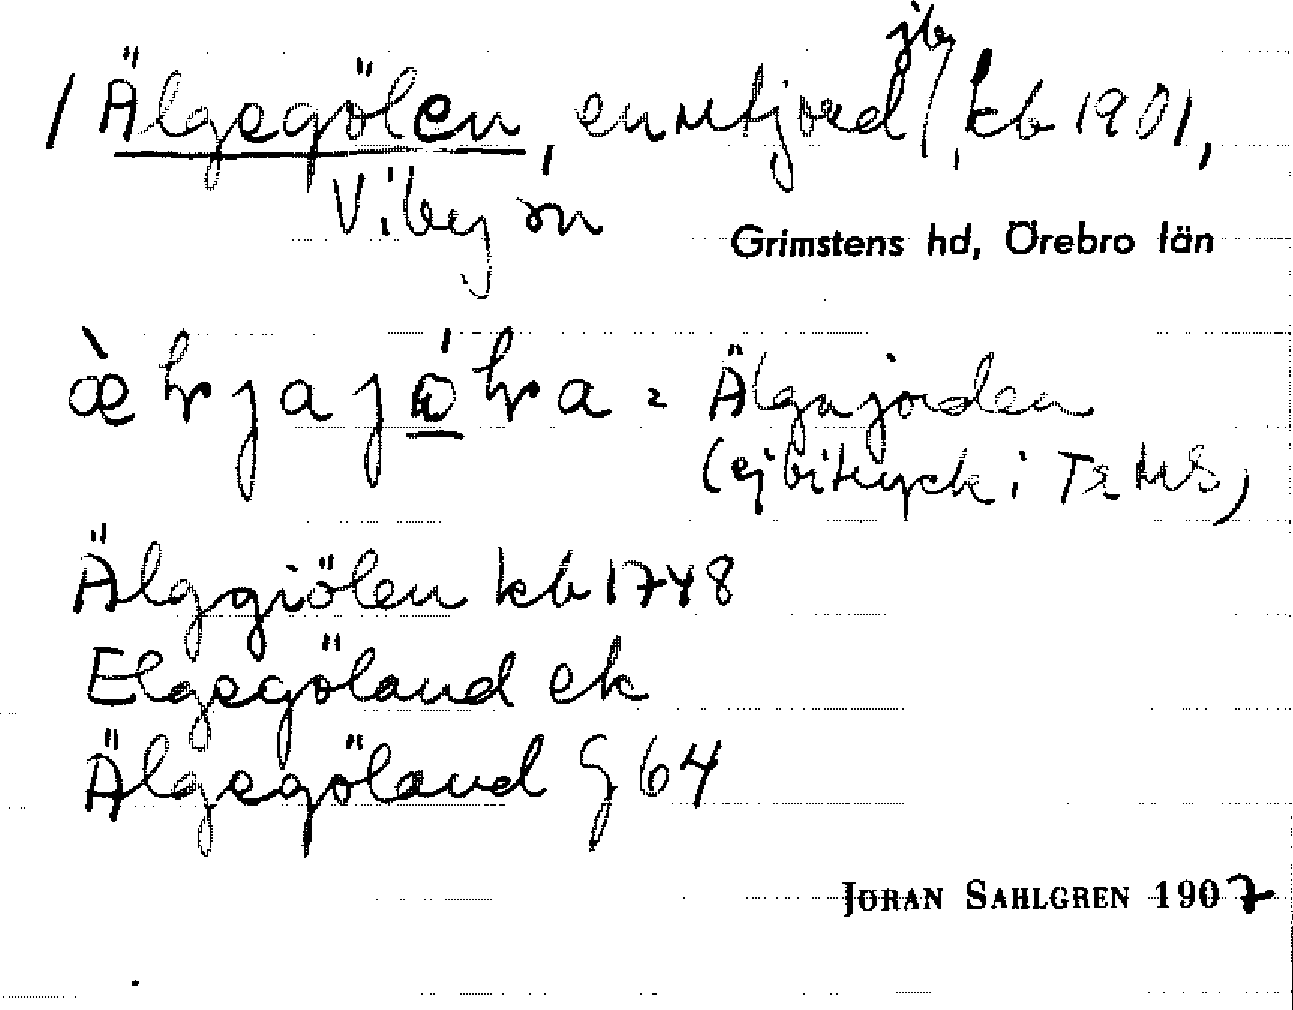 jby
/ Älgsgölen, enstfjord, kb 1901,
Viby sn
Grimstens hd, Örebro län
= Älgajorden
(ej bitryck i
Älggiölen kb 1748
Elgsgöland ek
Älgsgöland G 64
JÖRAN SAHLGREN 1907